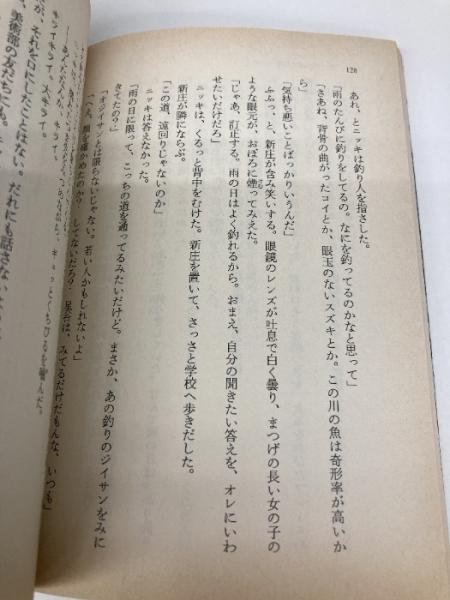 128
あれ、とニッキは釣り人を指さした。
「雨のたんびに釣りをしてるの。なにを釣ってるのかなと思って」
「さあね、背骨の曲がったコイとか、眼玉のないスズキとか。この川の魚は奇形率が高いか
ら」
「気持ち悪いことばっかりいうんだ」
ふふっ、と、新庄が含み笑いする。眼鏡のレンズが吐息で白く曇り、まつげの長い女の子の
ような眼元が、おぼろに煙ってみえた。
「じゃあ、訂正する。雨の日はよく釣れるから。おまえ、自分の聞きたい答えを、オレにいわ
せたいだけだろ」
ニッキは、くるっと背中をむけた。新庄を置いて、さっさと学校へ歩きだした。
新庄が隣にならぶ。
「この道、遠回りじゃないのか」
ニッキは答えなかった。
「雨の日に限って、こっちの道を通ってるみたいだけど。まさか、あの釣りのジイサンをみに
きてたの？」
「オジイサンとは限らないじゃない。若い人かもしれないよ」
「へえ、顔を確かめたのか？　してないだろ？　　は、みてるだけだもんな、いつも」
キライキライ、大キライ。
が、それを口にしたことはない。だれにも話さない
、美術部の方だちにも。